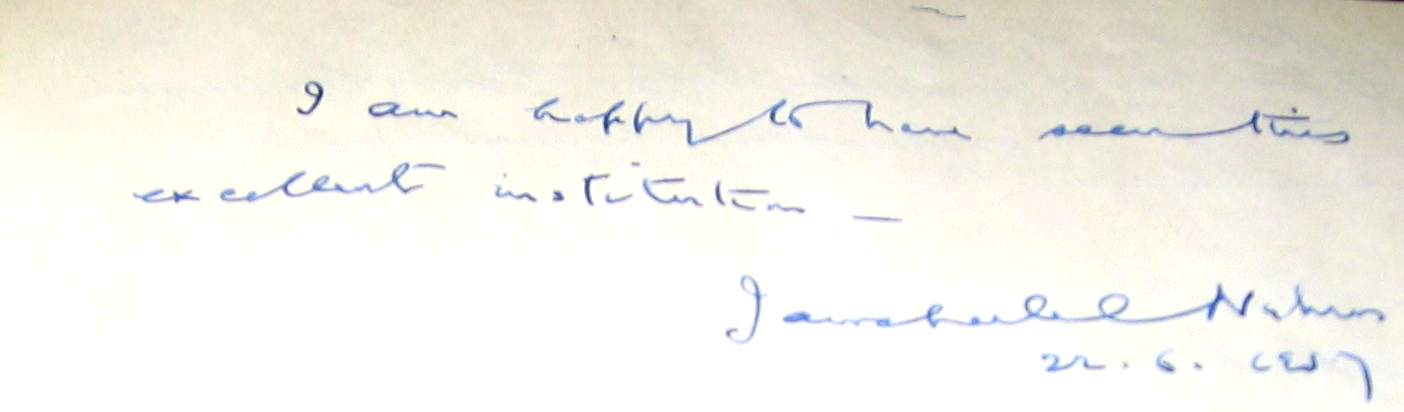 I am happy to have seen this
excellent institution —
Jawaharlal Nehru
22. 6. 1957